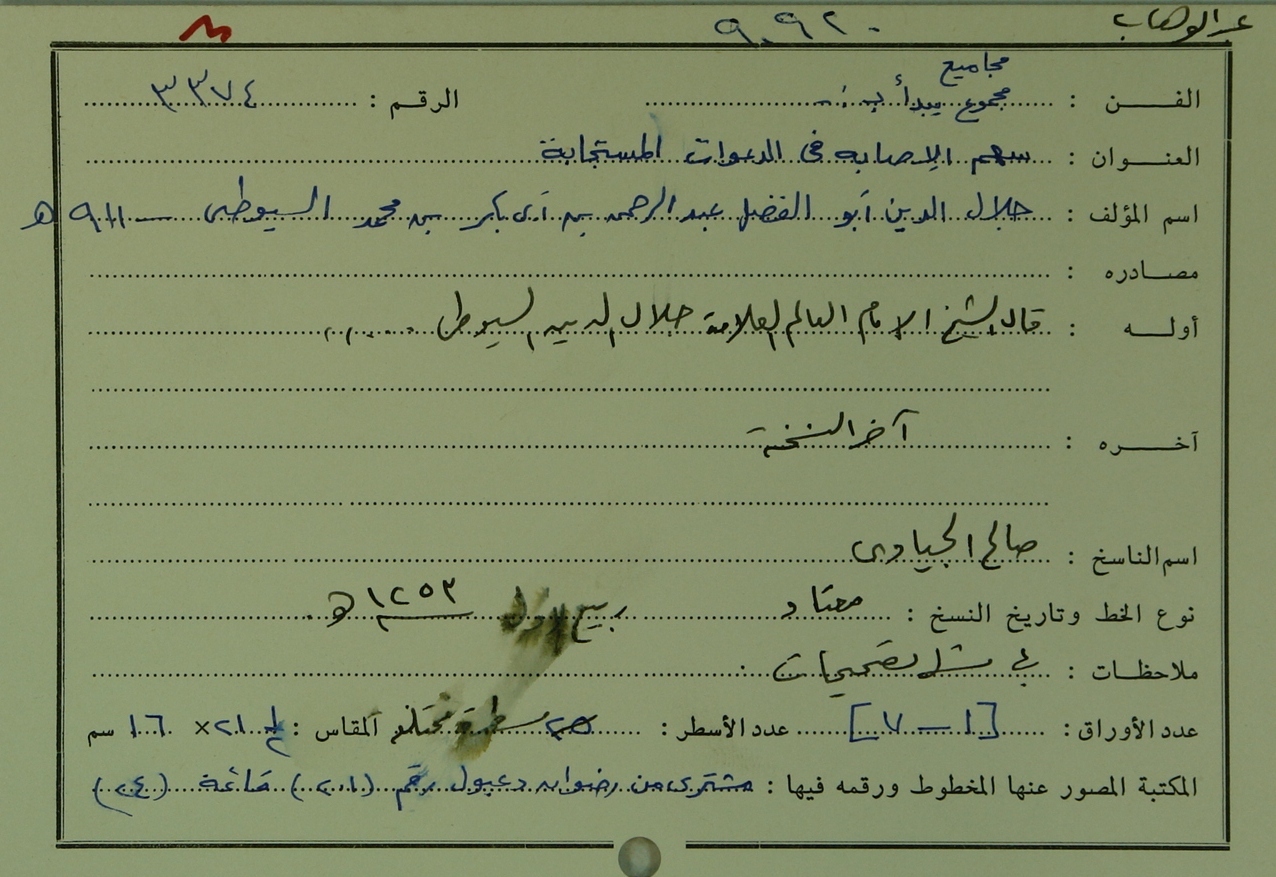 عبد الوهاب ٩.٩٢٠
مجاميع
الفن : مجموع يبدأ بـ :ـ الرقم : ٣٣٧٤
العنوان : سهم الإصابة في الدعوات المستجابة
اسم المؤلف : جلال الدين أبو الفضل عبد الرحمن بن أبي بكر بن محمد السيوطي — ٩١١ هـ
مصادره :
أوله : قال الشيخ الإمام العالم العلامة جلال الدين السيوطي .....
آخره : آخر النسخة
اسم الناسخ : صالح الجياوي
نوع الخط وتاريخ النسخ : معتاد ربيع الأول ١٢٥٣ هـ
ملاحظات : تصحيحات
عدد الأوراق : [١ — ٧] عدد الأسطر : ٢٥ مسطرة مختلفة المقاس : ٢١ × ١٦ سم
المكتبة المصور عنها المخطوط ورقمه فيها : مشترى من رضوان دعبول رقم (٢٠١) قائمة (٢٤)